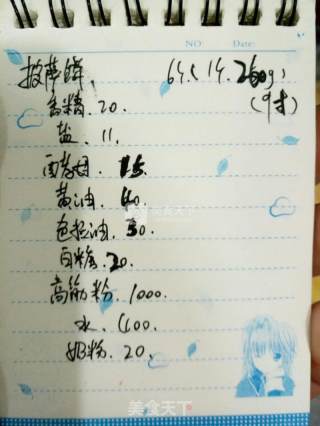 NO: Date:
披萨饼. 6寸(14. 260g)
(9寸)
香精. 20.
盐. 11.
面孝母. 15.
黄油. 40.
色拉油. 30.
白糖. 20.
高筋粉. 1000.
水. 400.
奶粉. 20.
美食天下